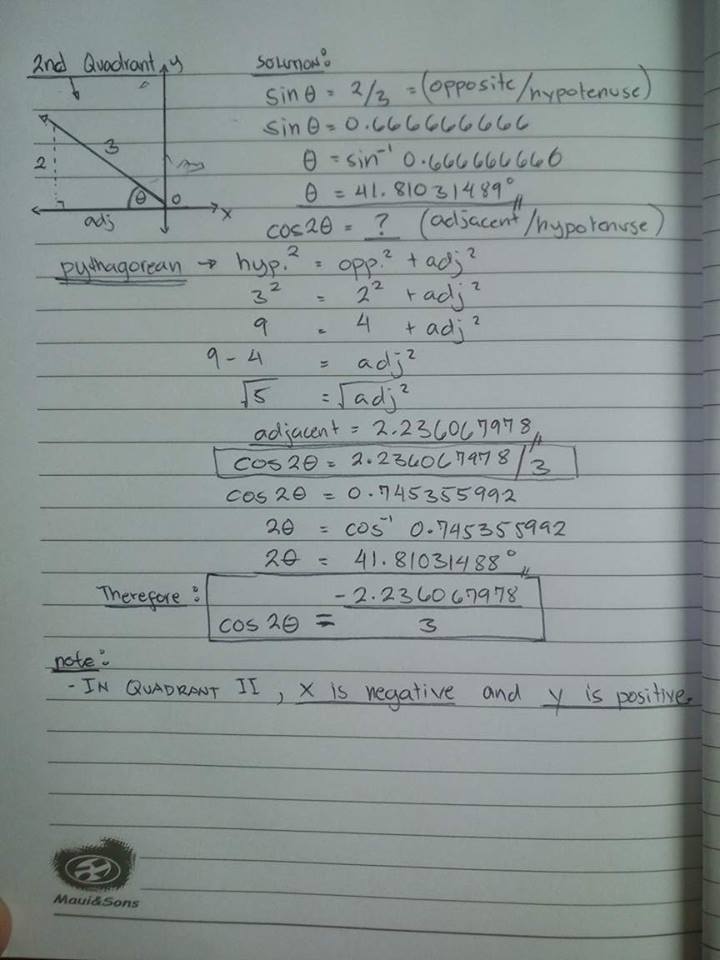 2nd Quadrant y
3
2
θ
0
x
adj
SOLUTION:
sin θ = 2/3 = (opposite/hypotenuse)
sin θ = 0.666666666
θ = sin⁻¹ 0.666666666
θ = 41.81031489°
cos2θ = ? (adjacent/hypotenuse)
pythagorean → hyp.² = opp.² + adj²
3² = 2² + adj²
9 = 4 + adj²
9 - 4 = adj²
√5 = √adj²
adjacent = 2.236067978
cos 2θ = 2.236067978/3
cos 2θ = 0.745355992
2θ = cos⁻¹ 0.745355992
2θ = 41.81031488°
Therefore: cos 2θ = -2.236067978
3
note:
- IN QUADRANT II, x is negative and y is positive.
Maui&Sons